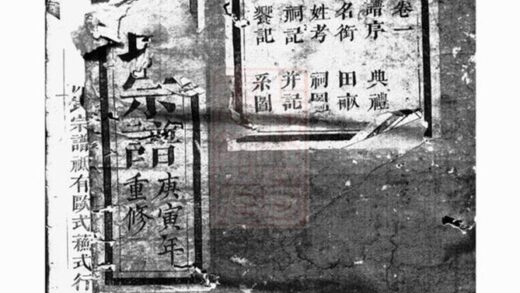 卷一
譜序 典禮
名銜 田畝
姓考 祠圖
祠記 并記
饗記 系圖
宗譜
庚寅年
重修
宗譜祗有歐式蘇式行